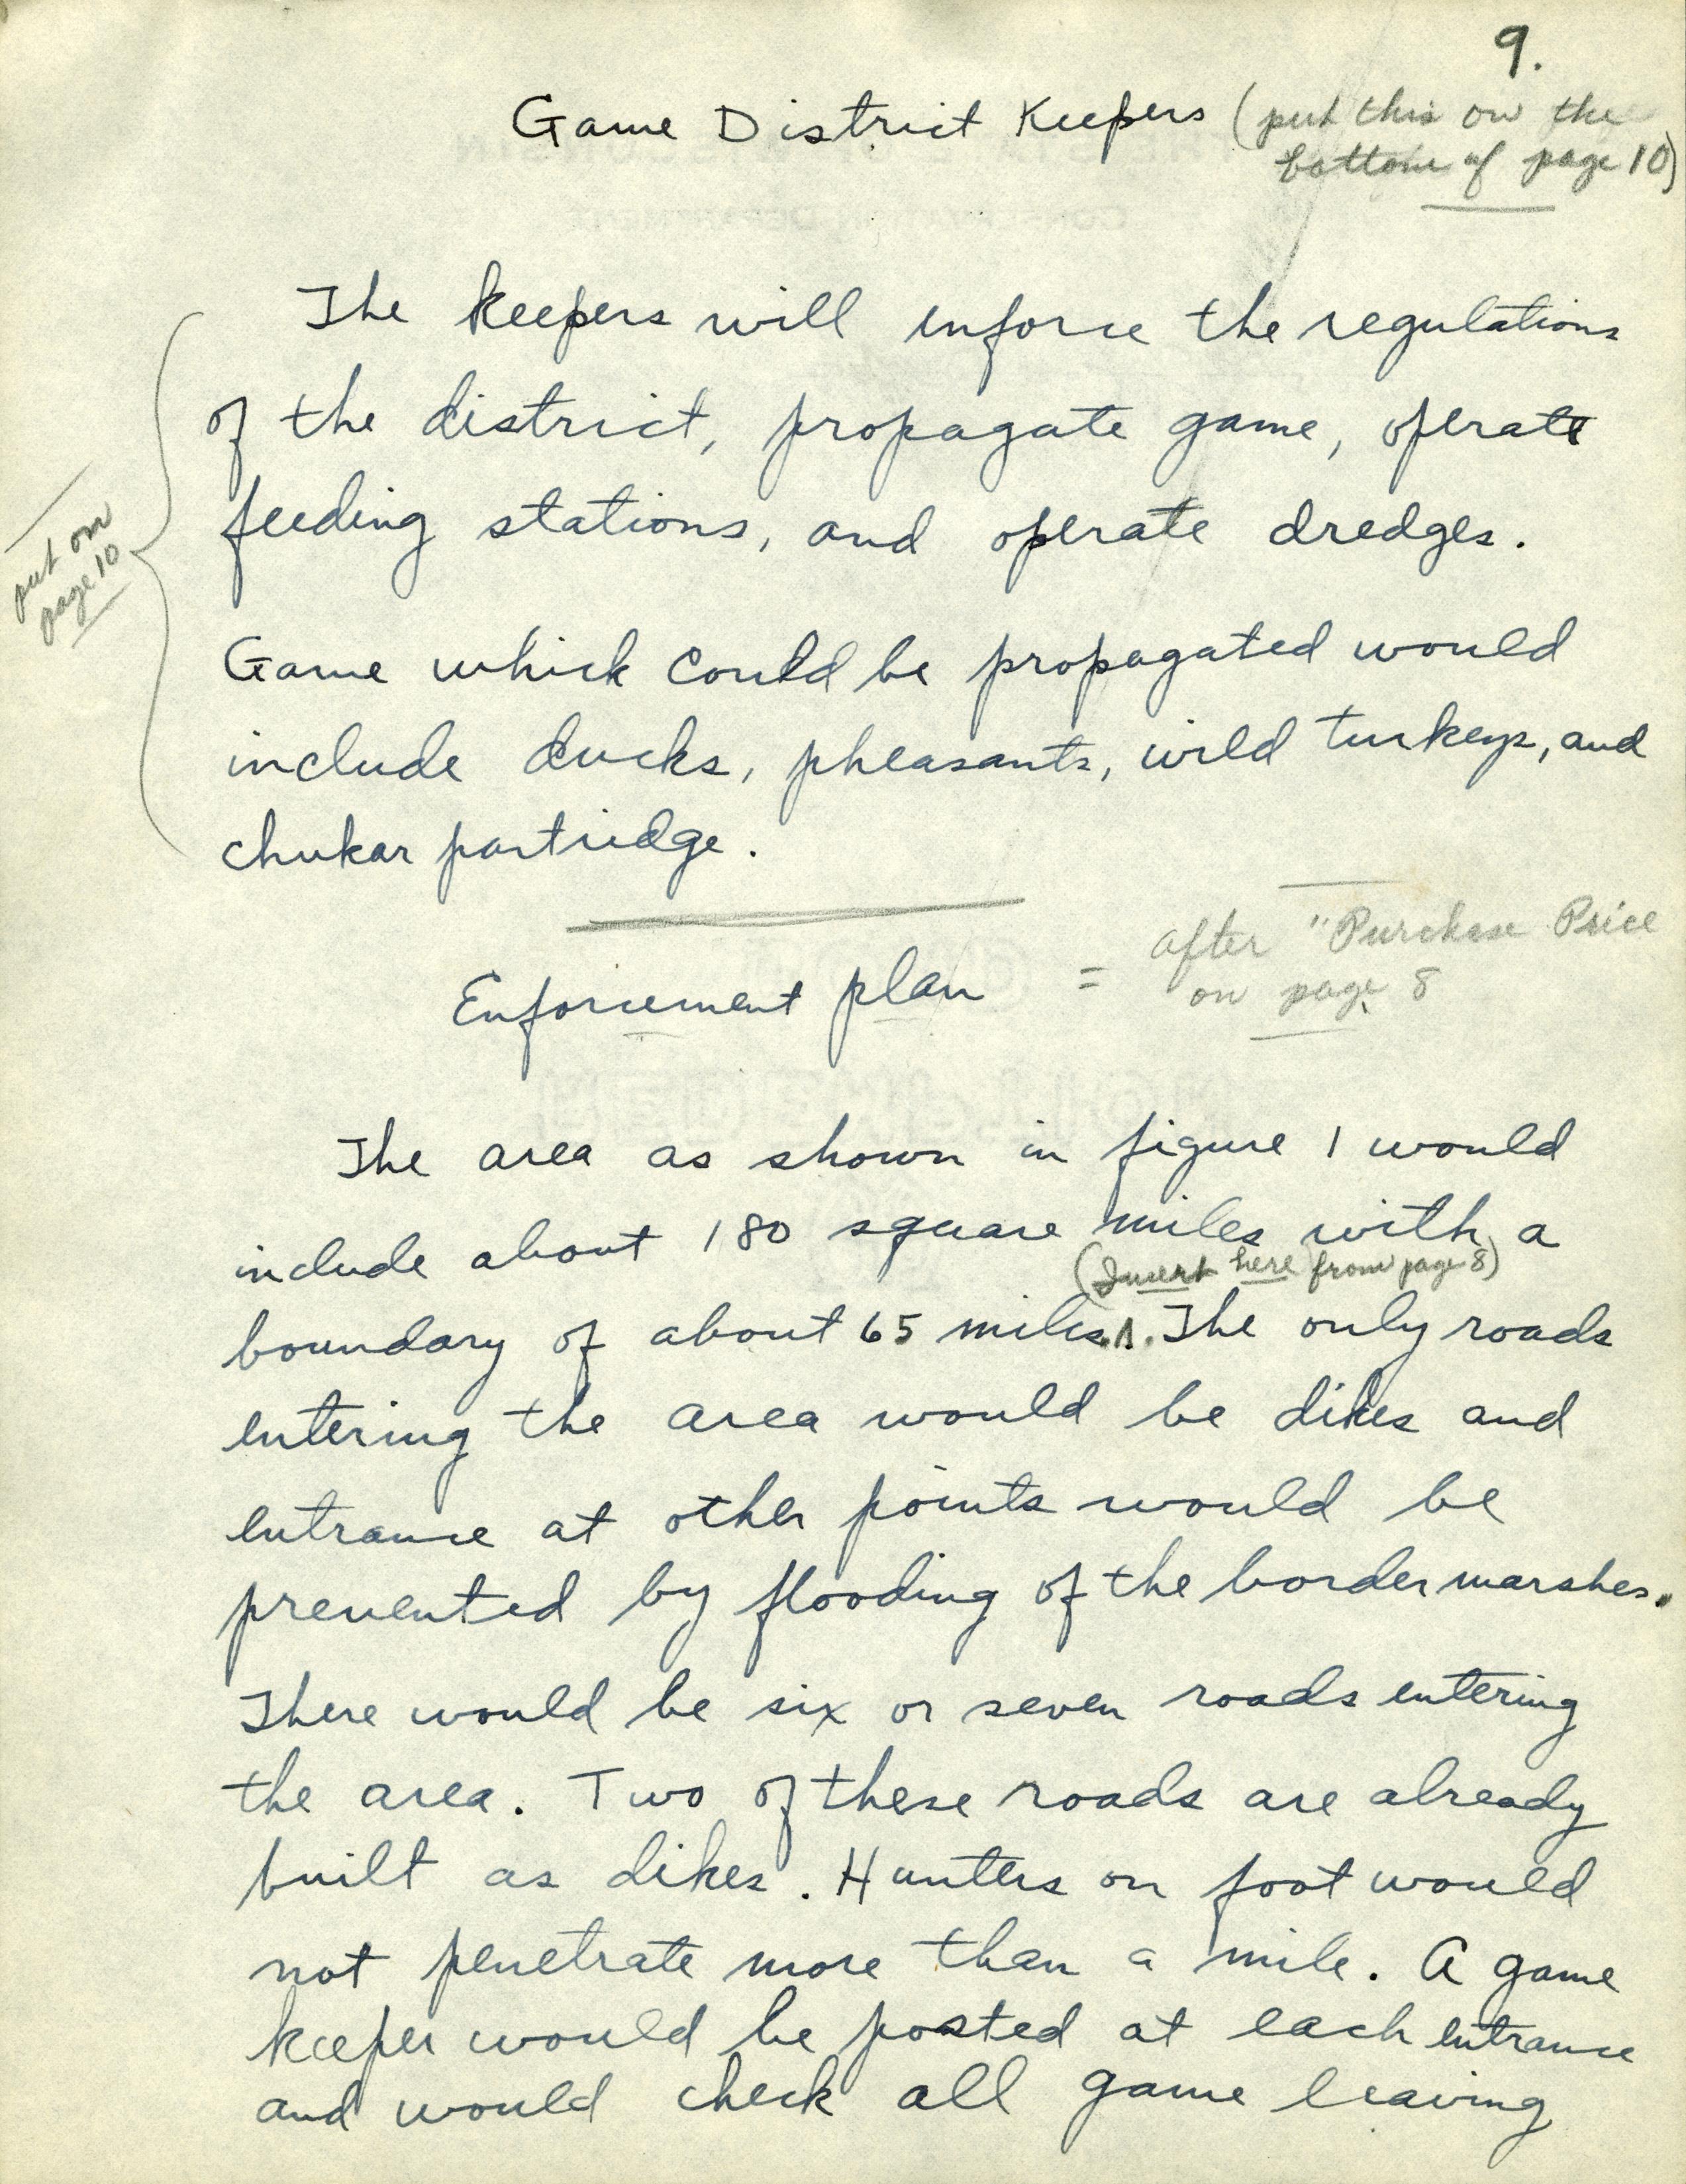 9.
Game District Keepers (put this on the
bottom of page 10)
The keepers will inforce the regulations
of the district, propagate game, operate
feeding stations, and operate dredges.
put on
page 10
Game which could be propagated would
include ducks, pheasants, wild turkeys, and
chukar partridge.
Enforcement plan = after "Purchase Price
on page 8
The area as shown in figure 1 would
include about 180 square miles with a
(Insert here from page 8)
boundary of about 65 miles. The only roads
entering the area would be dikes and
entrance at other points would be
prevented by flooding of the border marshes.
There would be six or seven roads entering
the area. Two of these roads are already
built as dikes. Hunters on foot would
not penetrate more than a mile. A game
keeper would be posted at each entrance
and would check all game leaving